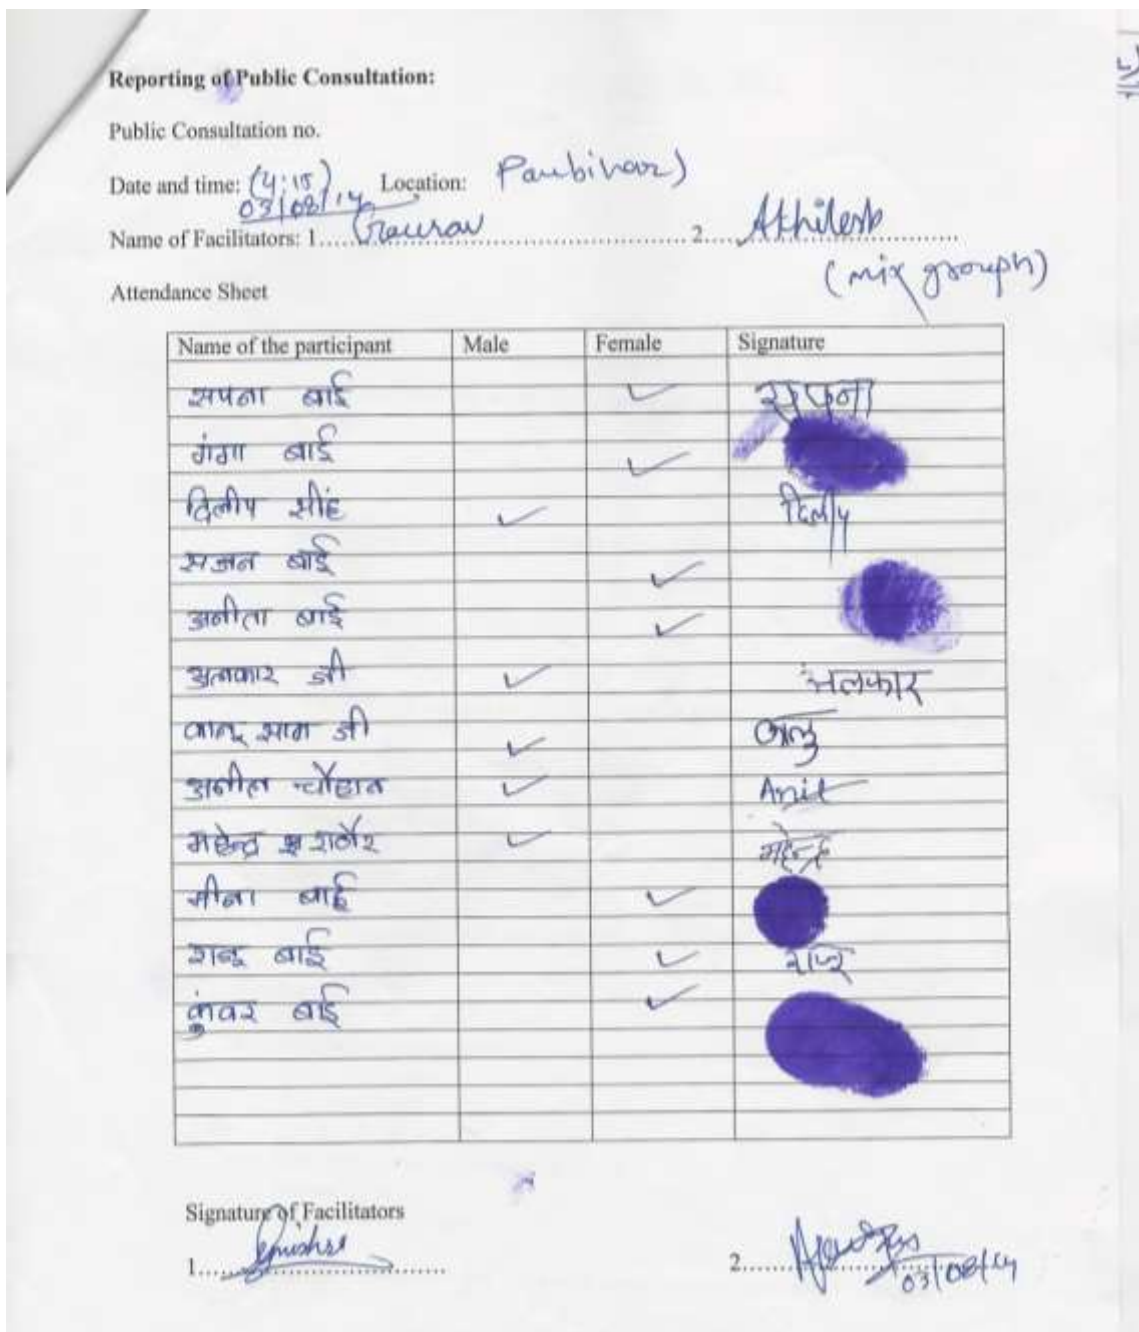 Reporting of Public Consultation:
Public Consultation no.
Date and time: (4:15) Location: Panbihar)
03/08/14
Name of Facilitators: 1.....Gaurav..... 2....Akhilesh.....
(mix grouph)
Attendance Sheet
Name of the participant Male Female Signature
सपना बाई ✓ सपना
गंगा बाई ✓
दिलीप सींह ✓ दिलीप
सजन बाई ✓
अनीता बाई ✓
अलकार जी ✓ अलकार
कालू जी ✓ कालु
अनील चौहान ✓ Anil
महेन्द्र राठौर ✓ महेन्द्र
मीना बाई ✓
बाई ✓
कुंवर बाई ✓
Signature of Facilitators
1..... 2.....
03/08/14